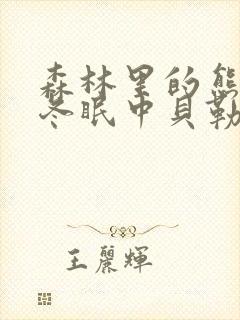 森林里的熊
冬眠中貝勒
王麗輝